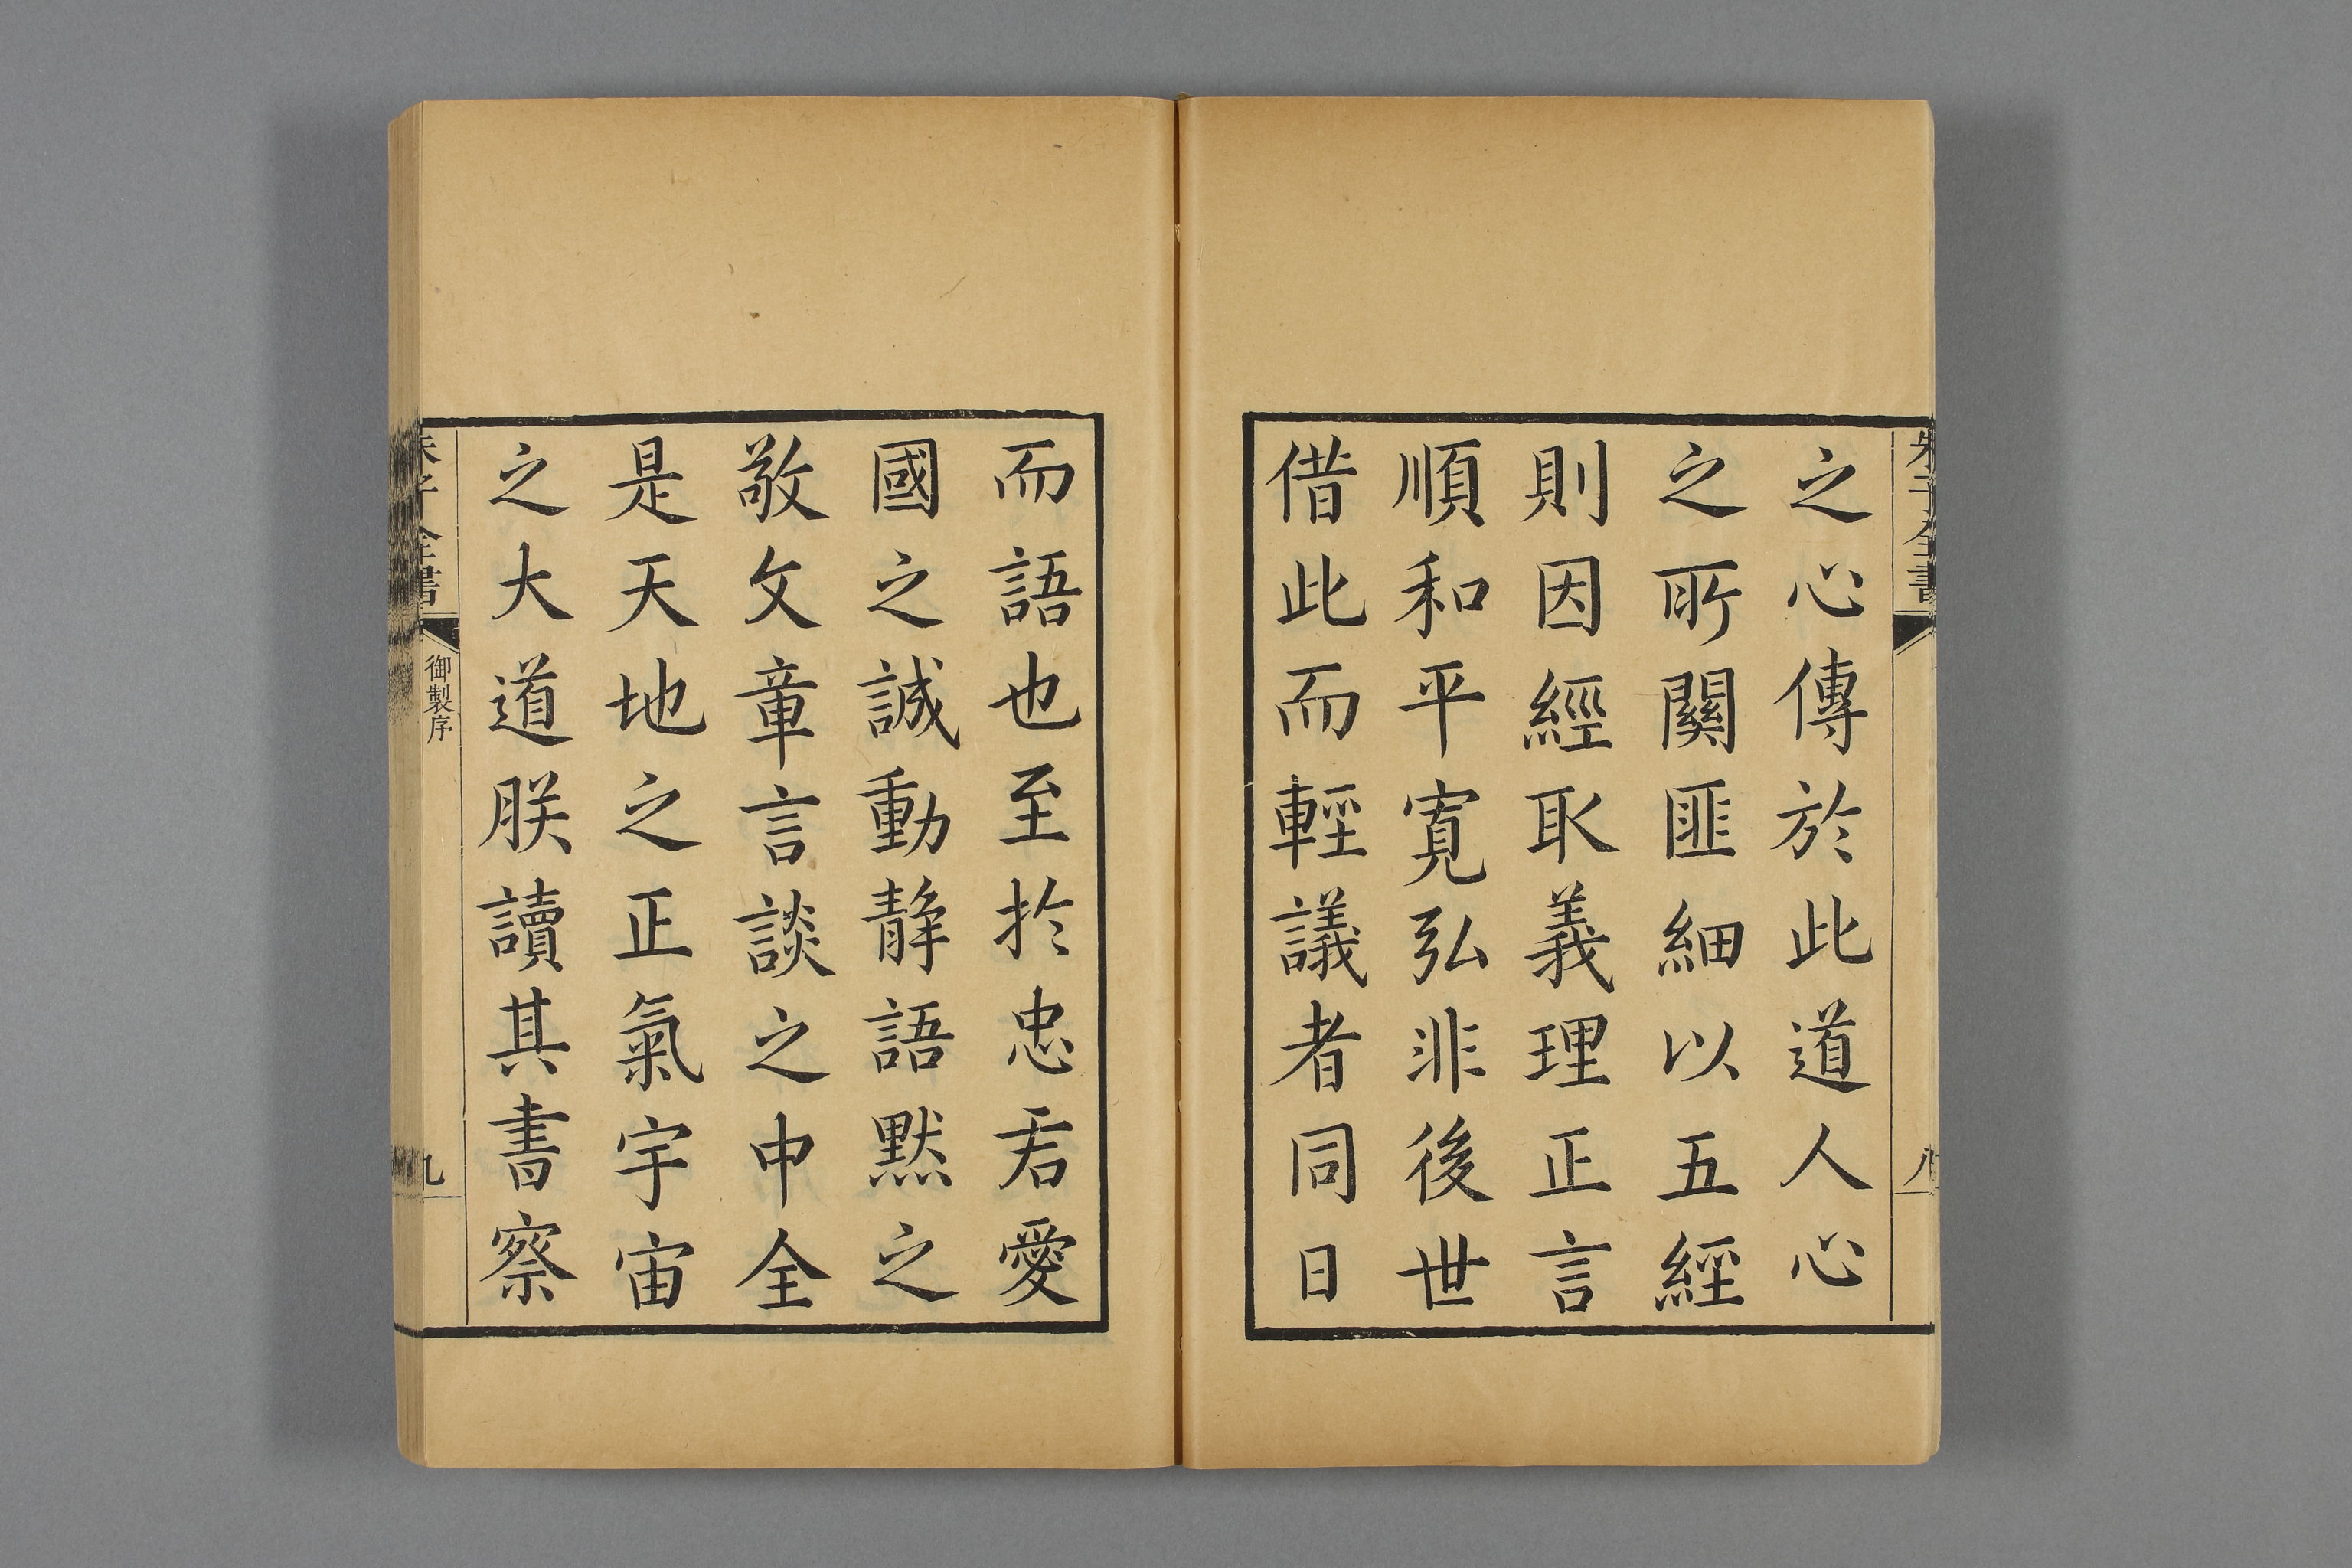 朱子全書
八
之心傳於此道人心
之所關匪細以五經
則因經取義理正言
順和平寬弘非後世
借此而輕議者同日
而語也至於忠君愛
國之誠動靜語默之
敬文章言談之中全
是天地之正氣宇宙
之大道朕讀其書察
朱子全書
御製序
九